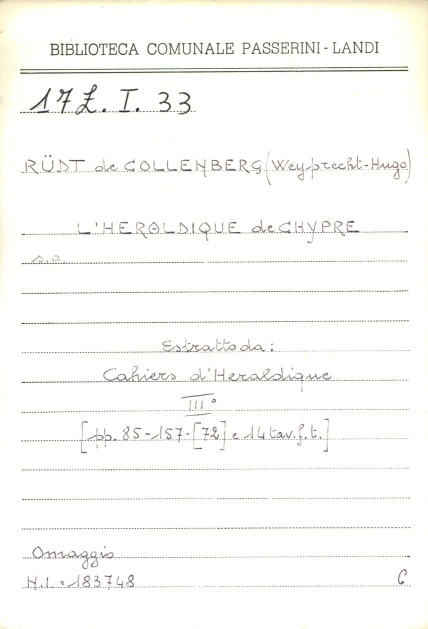 BIBLIOTECA COMUNALE PASSERINI - LANDI
17Z. I. 33
RÜDT de COLLENBERG (Weyprecht-Hugo)
L'HERALDIQUE de CHYPRE
s.a.
Estratto da:
Cahiers d'Heraldique
III°
[pp. 85-157-[72] e 14 tav. f. t.]
Omaggio
N.I. = 183748
C